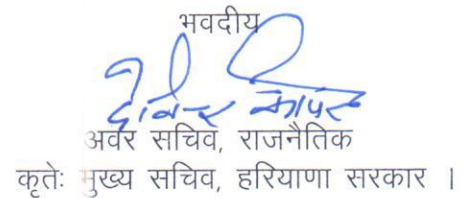 भवदीय
अवर सचिव, राजनैतिक
कृतेः मुख्य सचिव, हरियाणा सरकार ।